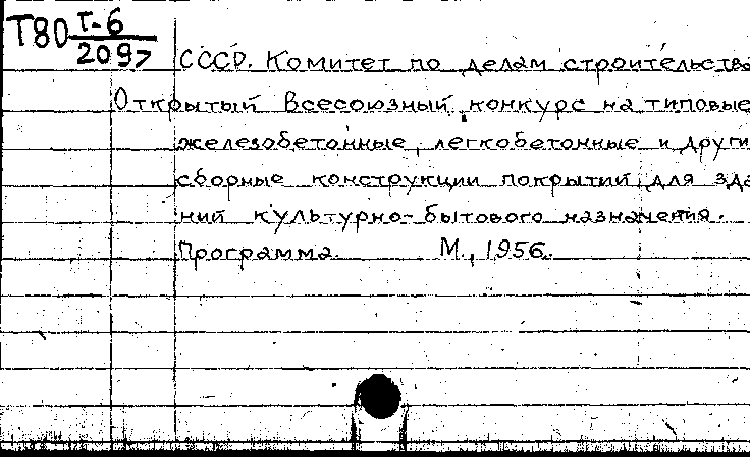 Т80 Т-6
2097
СССР. Комитет по делам строительства
Открытый Всесоюзный конкурс на типовые
железобетонные, легкобетонные и други
сборные конструкции покрытий для зда
ний культурно-бытового назначения.
Программа. М., 1956.